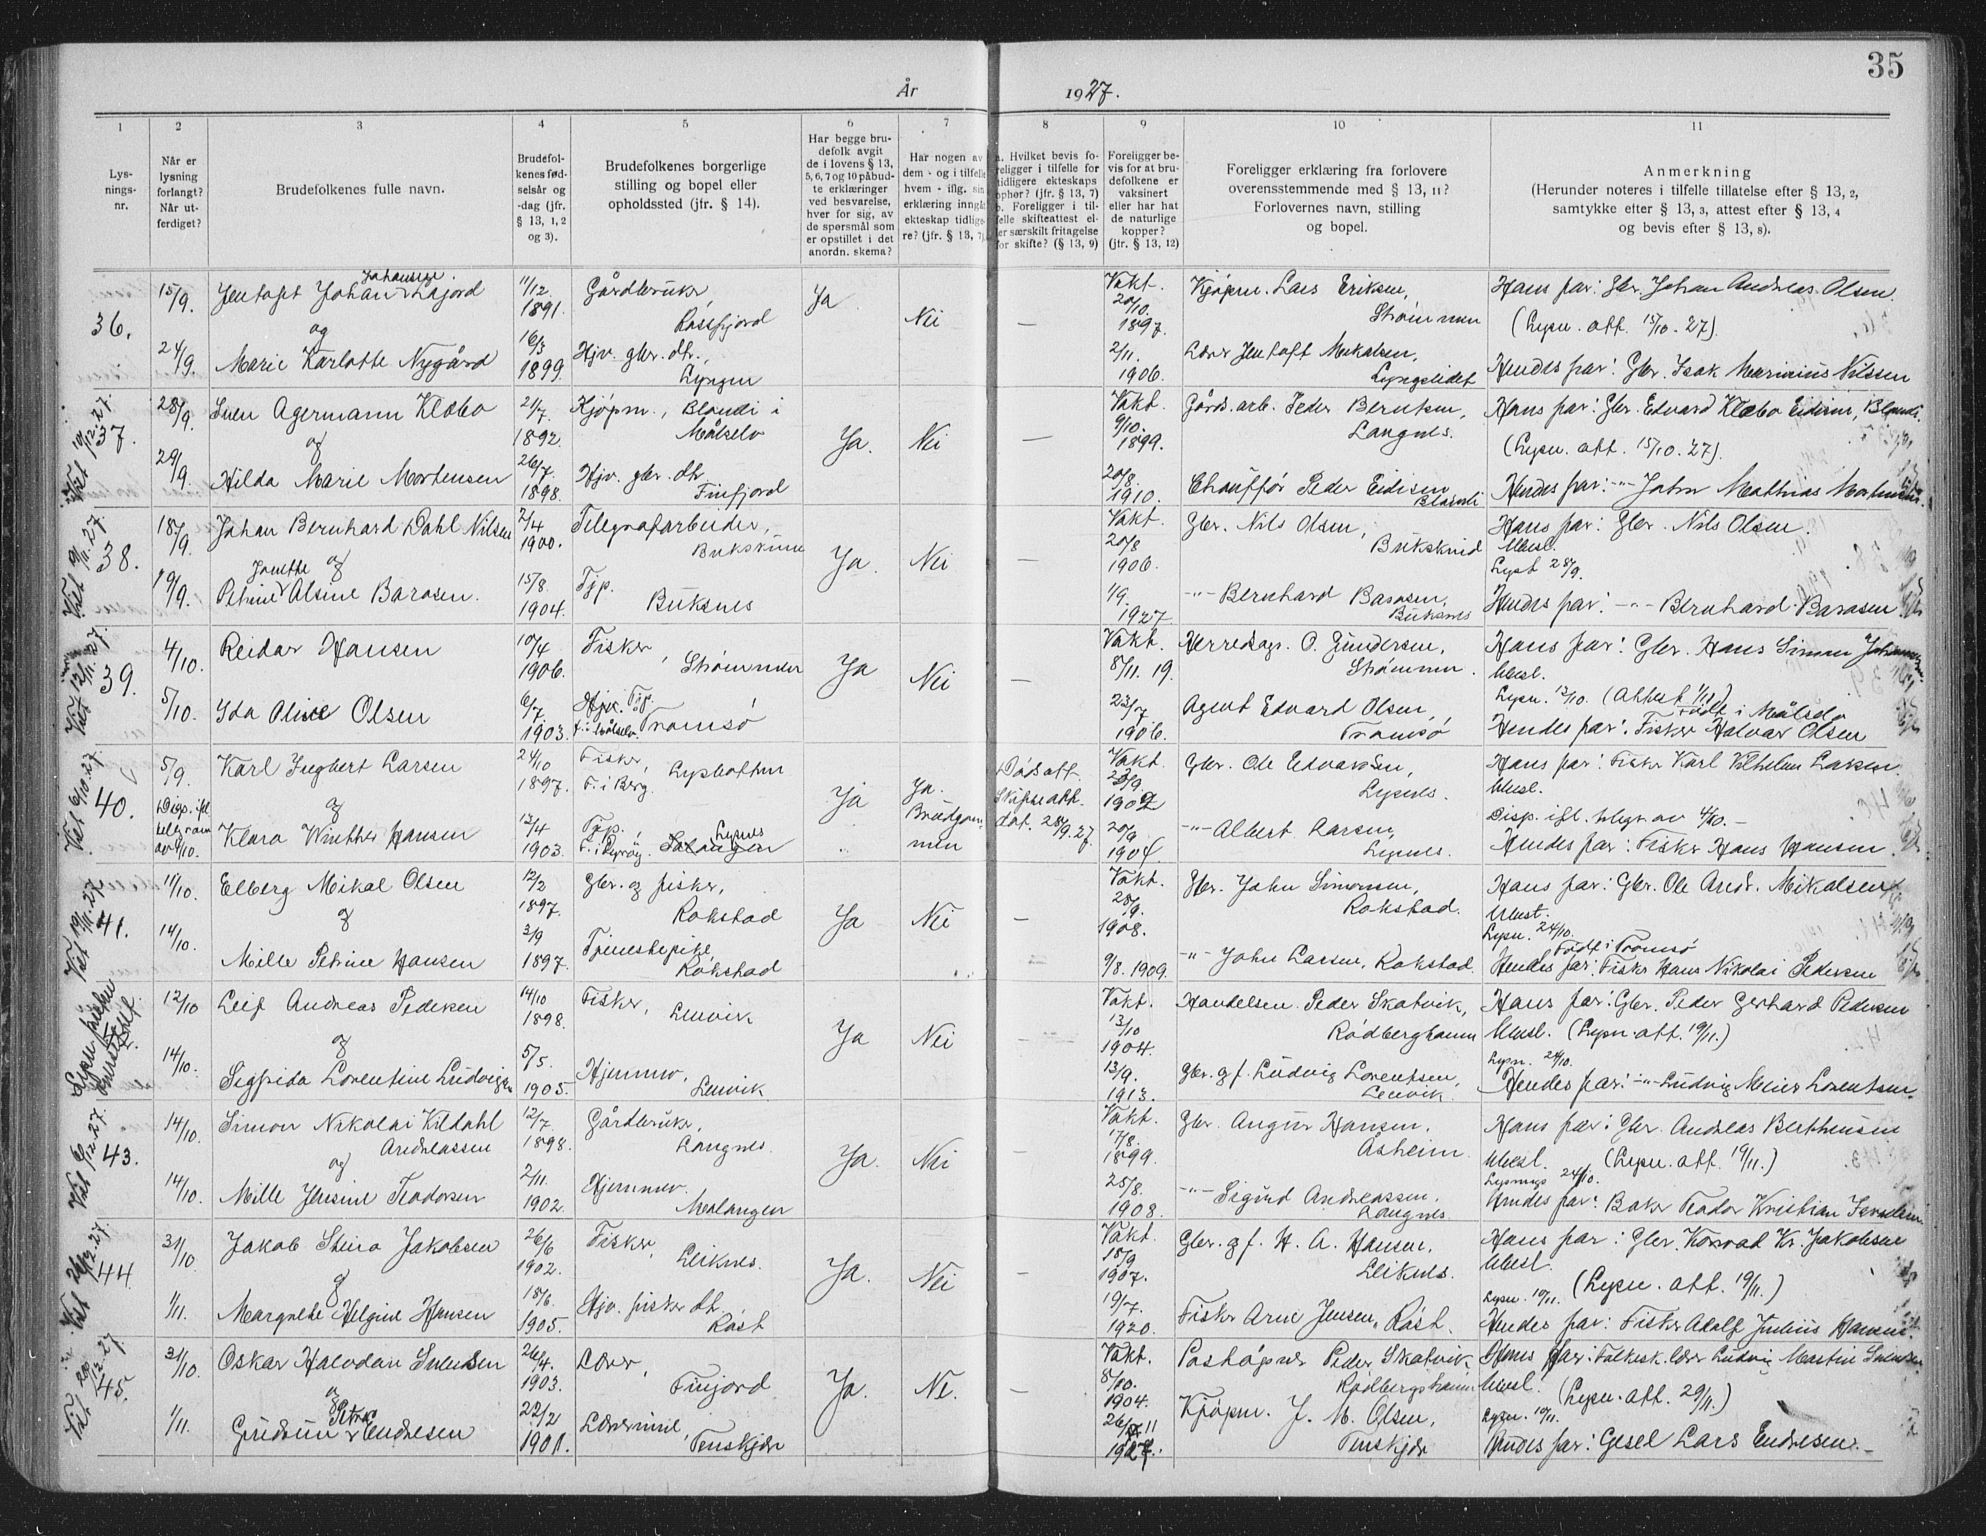 35
År 1927.
1 2 3 4 5 6 7 8 9 10 11
Lysningsnr.
Når er lysning forlangt? Når utferdiget?
Brudefolkenes fulle navn.
Brudefolkenes fødselsår og -dag (jfr. § 13, 1, 2 og 3).
Brudefolkenes borgerlige stilling og bopel eller opholdssted (jfr. § 14).
Har begge brudefolk avgit de i lovens § 13, 5, 6, 7 og 10 påbudte erklæringer ved besvarelse, hver for sig, av de spørsmål som er opstillet i det anordn. skema?
Har nogen av dem - og i tilfelle hvem - iflg. sin erklæring inngått ekteskap tidligere? (jfr. § 13, 7)
a. Hvilket bevis foreligger i tilfelle for tidligere ekteskaps ophør? (jfr. § 13, 7) b. Foreligger i tilfelle skifteattest eller særskilt fritagelse for skifte? (§ 13, 9)
Foreligger bevis for at brudefolkene er vaksinert eller har hat de naturlige kopper? (jfr. § 13, 12)
Foreligger erklæring fra forlovere overensstemmende med § 13, 11? Forlovernes navn, stilling og bopel.
Anmerkning (Herunder noteres i tilfelle tillatelse efter § 13, 2, samtykke efter § 13, 3, attest efter § 13, 4 og bevis efter § 13, 8).
36. 15/9. Jentoft Johan Johansen Lajord 11/12. 1891. Gårdbruker, Rossfjord Ja Nei — Vakt. 20/10. 1897. Kjøpm. Lars Eriksen, Strømmen Hans far: Gbr. Johan Andreas Olsen.
(Lysn. att. 15/10. 27).
og
24/9. Marie Karlotte Nygård 16/3 1899. Hjv. gbr. dtr., Lyngen 2/11. 1906. Lærer Jentoft Mikalsen, Lyngseidet Hendes far: Gbr. Isak Marinius Nilssen
37. 28/9. Sven Agermann Klæbo 21/7. 1892. Kjøpm., Blandli i Målselv Ja. Nei — Vakt. 9/10. 1899. Gårds.arb. Peder Berntsen, Langnes. Hans far: Gbr. Edvard Klæbo Eidisen,
(Lysn. att. 15/10. 27).
og
29/9. Hilda Marie Mortensen 26/7. 1898. Hjv. gbr. dtr Finfjord 20/8. 1910. Chauffør Peder Eidisen Hendes far: -"- John Mathias Mortensen
38. 18/9. Johan Bernhard Dahl Nilsen 2/4 1900. Telegrafarbeider, Ja. Nei — Vakt. 20/8 1906. Gbr. Nils Olsen, Bukskind Hans far: Gbr. Nils Olsen.
Utvist. Lyst 28/9.
og
19/9. Petrine Janette Alsine Barosen. 15/8. 1904. Tjp. Buksnes 1/9. 1927 -"- Bernhard Barosen, Buksnes Hendes far: -"- Bernhard Barosen
39. 4/10. Reidar Hansen 10/4 1906. Fisker, Strømmen Ja Nei — Vakt. 8/11. 19. Herredsagr. O. Gundersen, Strømmen. Hans far: Gbr. Hans Simon
Lysn. 12/10. (Attest 1/11.)
5/10. Ida Oline Olsen 6/7 1903. Hjv. Tjp. Tromsø 23/7 1906. Agent Edvard Olsen, Tromsø Født i Målselv
Hendes far: Fisker Halvar Olsen
40. 5/9. Karl Ingbert Larsen 24/10 1897. Fisker, Lysbotten F. i Berg. Ja Ja. Brudgommen Dødsatt. Skifteatt. dat. 28/9. 27. Vakt. 1902 Gbr. Ole Edvardsen, Lysnes. Hans far: Fisker Karl Vilhelm Larsen.
Disp. ifl. telegram av 4/10. og
Klara Winther Hansen 13/4 1903. Tjp. Lysnes Salangen 20/9 1904. -"- Albert Larsen, Lysnes. Disp. ifl. telegr. av 4/10. —
Hendes far: Fisker Hans Hansen.
41. 11/10. Elberg Mikal Olsen 12/2 1897. Gbr. og fisker, Rokstad Ja Nei — Vakt. 28/9. 1908. Gbr. John Simonsen, Rokstad. Hans far: Gbr. Ole Andr. Mikalsen
Lysn. 24/10. Født i Tromsø
og
14/10. Mille Petrine Hansen 3/9 1897. Tjenestepike, Rokstad 9/8. 1909. -"- John Larsen, Rokstad. Hendes far: Fisker Hans Nikolai Pedersen
12/10 Leif Andreas Pedersen 14/10 1898. Fisker, Lenvik Ja Nei — Vakt. 13/10 1904. Handelsm. Peder Skatvik, Rødberghamn Hans far: Gbr. Peder Gerhard Pedersen
(Lysn. att. 19/11.)
Lysn. 24/10.
og
14/10. Sigfrida Lorentine Ludvigsen 5/5. 1905. Hjemmev., Lenvik 13/9. 1913. Gbr. g.f. Ludvig Lorentsen, Lenvik. Hendes far: -"- Ludvig Meier Lorentsen.
43. 14/10. Simon Nikolai Kildahl Andreassen 12/7 1898. Gårdbruker, Langnes Ja. Nei — Vakt. 17/8. 1899. Gbr. Angur Hansen, Åsheim Hans far: Gbr. Andreas Berthensen
(Lysn. att. 19/11.)
Lysnings 24/10.
og
14/10. Mille Jensine Teodorsen 2/11. 1902. Hjemmev. Malangen 25/8. 1908. -"- Sigurd Andreassen. Langnes Hendes far: Baker Teodor Kristian
44. 31/10. Jakob Steiro Jakobsen 26/6 1902. Fisker, Leiknes. Ja. Nei — Vakt. 15/9 1907. Gbr. g.f. H. A. Hansen, Leiknes. Hans far: Gbr. Konrad Kr. Jakobsen
(Lysn. att. 19/11.)
Lysn. 10/11.
og
1/11. Margrethe Helgine Hansen 18/6. 1905. Hjv. fisker dt. Røst 19/7 1920. Fisker Arne Jensen, Røst. Hendes far: Fisker Adolf Julius Hansen.
45. 31/10. Oskar Halvdan Svendsen 26/4. 1903. Lærer, Finjord Ja. Nei. — Vakt. 8/10. 1904. Poståpner Peder Skatvik Rødbergshamn Hans far: Folkesk.lærer Ludvig Martin Svendsen
(Lysn. att. 29/11.)
Lysn. 10/11.
og
1/11. Gudrun Petra Endresen 22/2 1901. Lærerinne, Tenskjær 1927. Kjøpm. J. M. Olsen, Tenskjær Hendes far: Gesel Lars Endresen. —